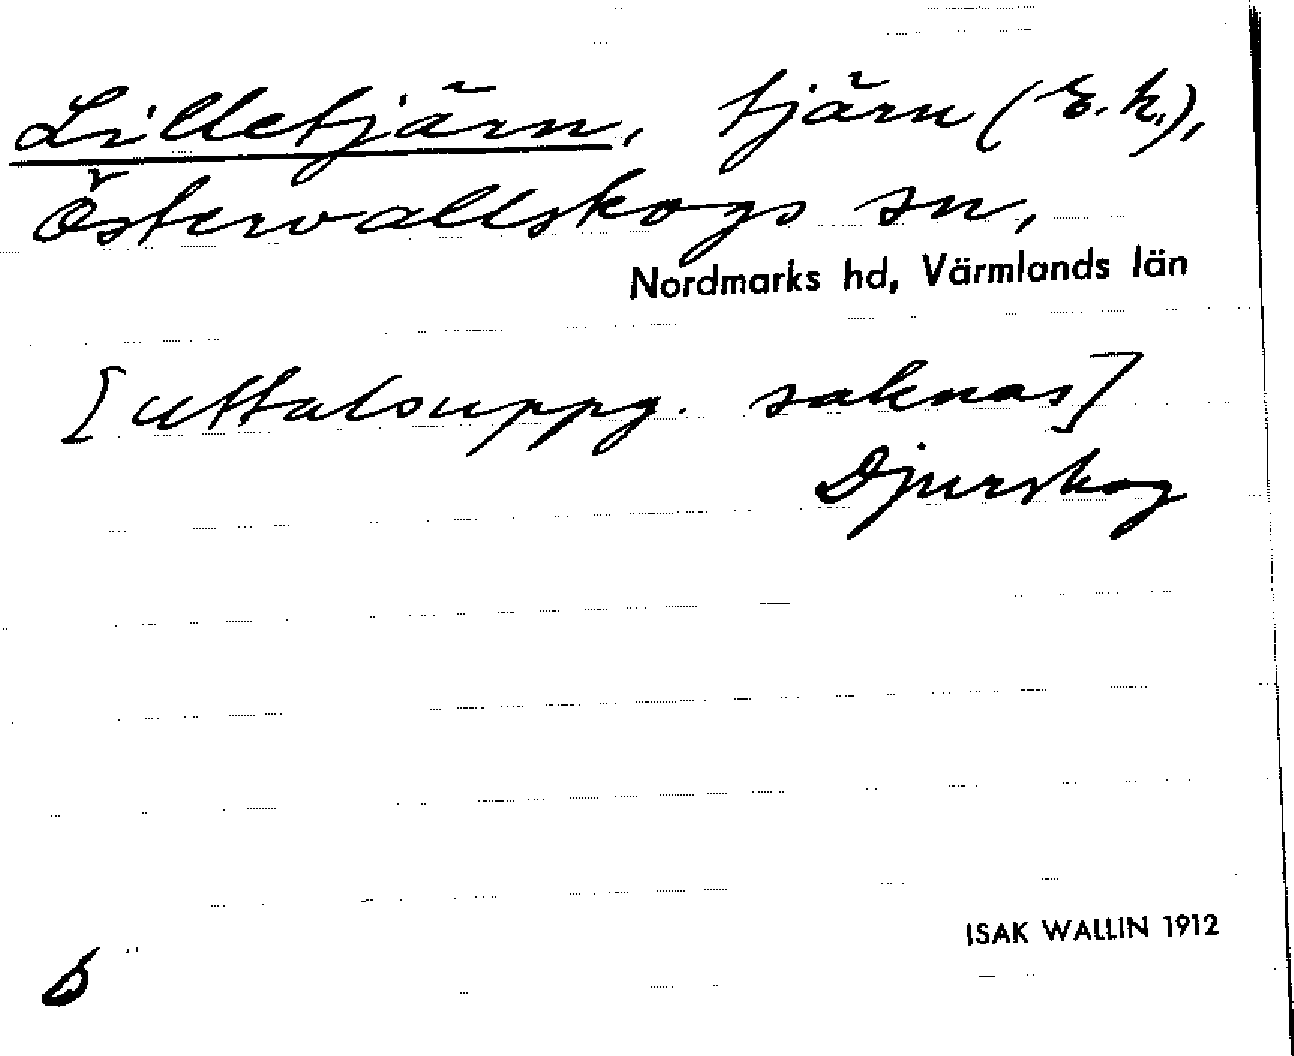 Lilletjärn, tjärn (E.k.),
Östervallskogs sn,
Nordmarks hd, Värmlands län
[uttalsuppg. saknas]
Djurskog
ISAK WALLIN 1912